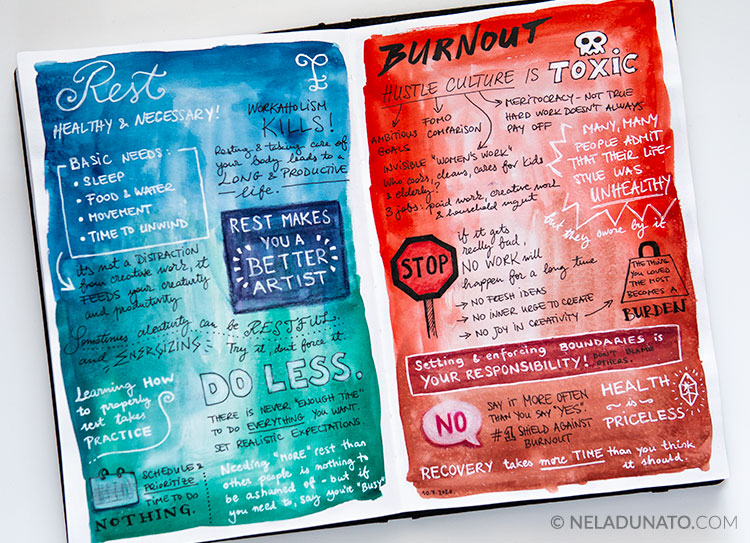 Rest
HEALTHY & NECESSARY!
BASIC NEEDS:
• SLEEP
• FOOD & WATER
• MOVEMENT
• TIME TO UNWIND
it's not a DISTRACTION
from creative work, it
FEEDS your creativity
and productivity
WORKAHOLISM
KILLS!
Resting & taking care of
your body leads to a
LONG & PRODUCTIVE
life.
REST MAKES
YOU A
BETTER
ARTIST
Sometimes creativity can be RESTFUL
and ENERGIZING. Try it, don't force it.
Learning HOW
to properly
rest takes
PRACTICE
DO LESS.
THERE IS NEVER "ENOUGH TIME"
TO DO EVERYTHING YOU WANT.
SET REALISTIC EXPECTATIONS.
SCHEDULE &
PRIORITIZE
TIME TO DO
NOTHING.
Needing "MORE" rest than
other people is nothing to
be ashamed of - but if
you need to, say you're "BUSY"
BURNOUT
HUSTLE CULTURE IS TOXIC
AMBITIOUS
GOALS
FOMO
COMPARISON
MERITOCRACY - NOT TRUE
HARD WORK DOESN'T ALWAYS
PAY OFF
INVISIBLE "WOMEN'S WORK"
Who cooks, cleans, cares for kids
& elderly?
3 jobs: paid work, creative work
& household mgmt
MANY, MANY
PEOPLE ADMIT
THAT THEIR LIFE-
STYLE WAS
UNHEALTHY
but they swore by it
STOP
if it gets
really bad,
NO WORK will
happen for a long time
→ NO FRESH IDEAS
→ NO INNER URGE TO CREATE
→ NO JOY IN CREATIVITY
THE THING
YOU LOVED
THE MOST
BECOMES A
BURDEN
Setting & enforcing BOUNDARIES is
YOUR RESPONSIBILITY! DON'T BLAME
OTHERS.
NO
SAY IT MORE OFTEN
THAN YOU SAY "YES".
#1 SHIELD AGAINST
BURNOUT
HEALTH
is
PRICELESS
RECOVERY takes more TIME than you think
it should.
© NELADUNATO.COM